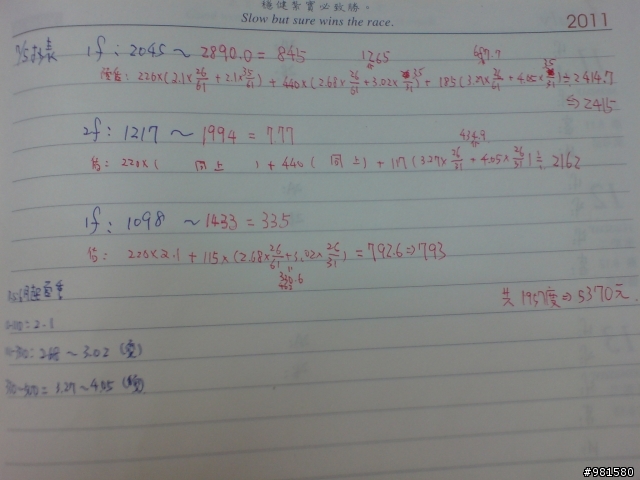 穩健踏實必致勝。
Slow but sure wins the race.
2011
7/5抄表 1f : 2045 ~ 2890.0 = 845 1265 687.7
220×(2.1×26/61+2.1×35/61) + 440×(2.68×26/61+3.02×35/61) + 185(3.27×26/61+4.05×35/61)≒2414.7
⇒2415
2f : 1217 ~ 1994 = 777 434.9
220×( 同上 ) + 440 ( 同上 ) + 117 (3.27×26/61+4.05×26/31)≒2162
1f : 1098 ~ 1433 = 335
220×2.1 + 115×(2.68×26/61+3.02×26/31) = 792.6⇒793
330.6
462
共 1957度⇒5370元.
= 2.1
= 2.68 ~ 3.02 (夏)
= 3.27 ~ 4.05
#981580